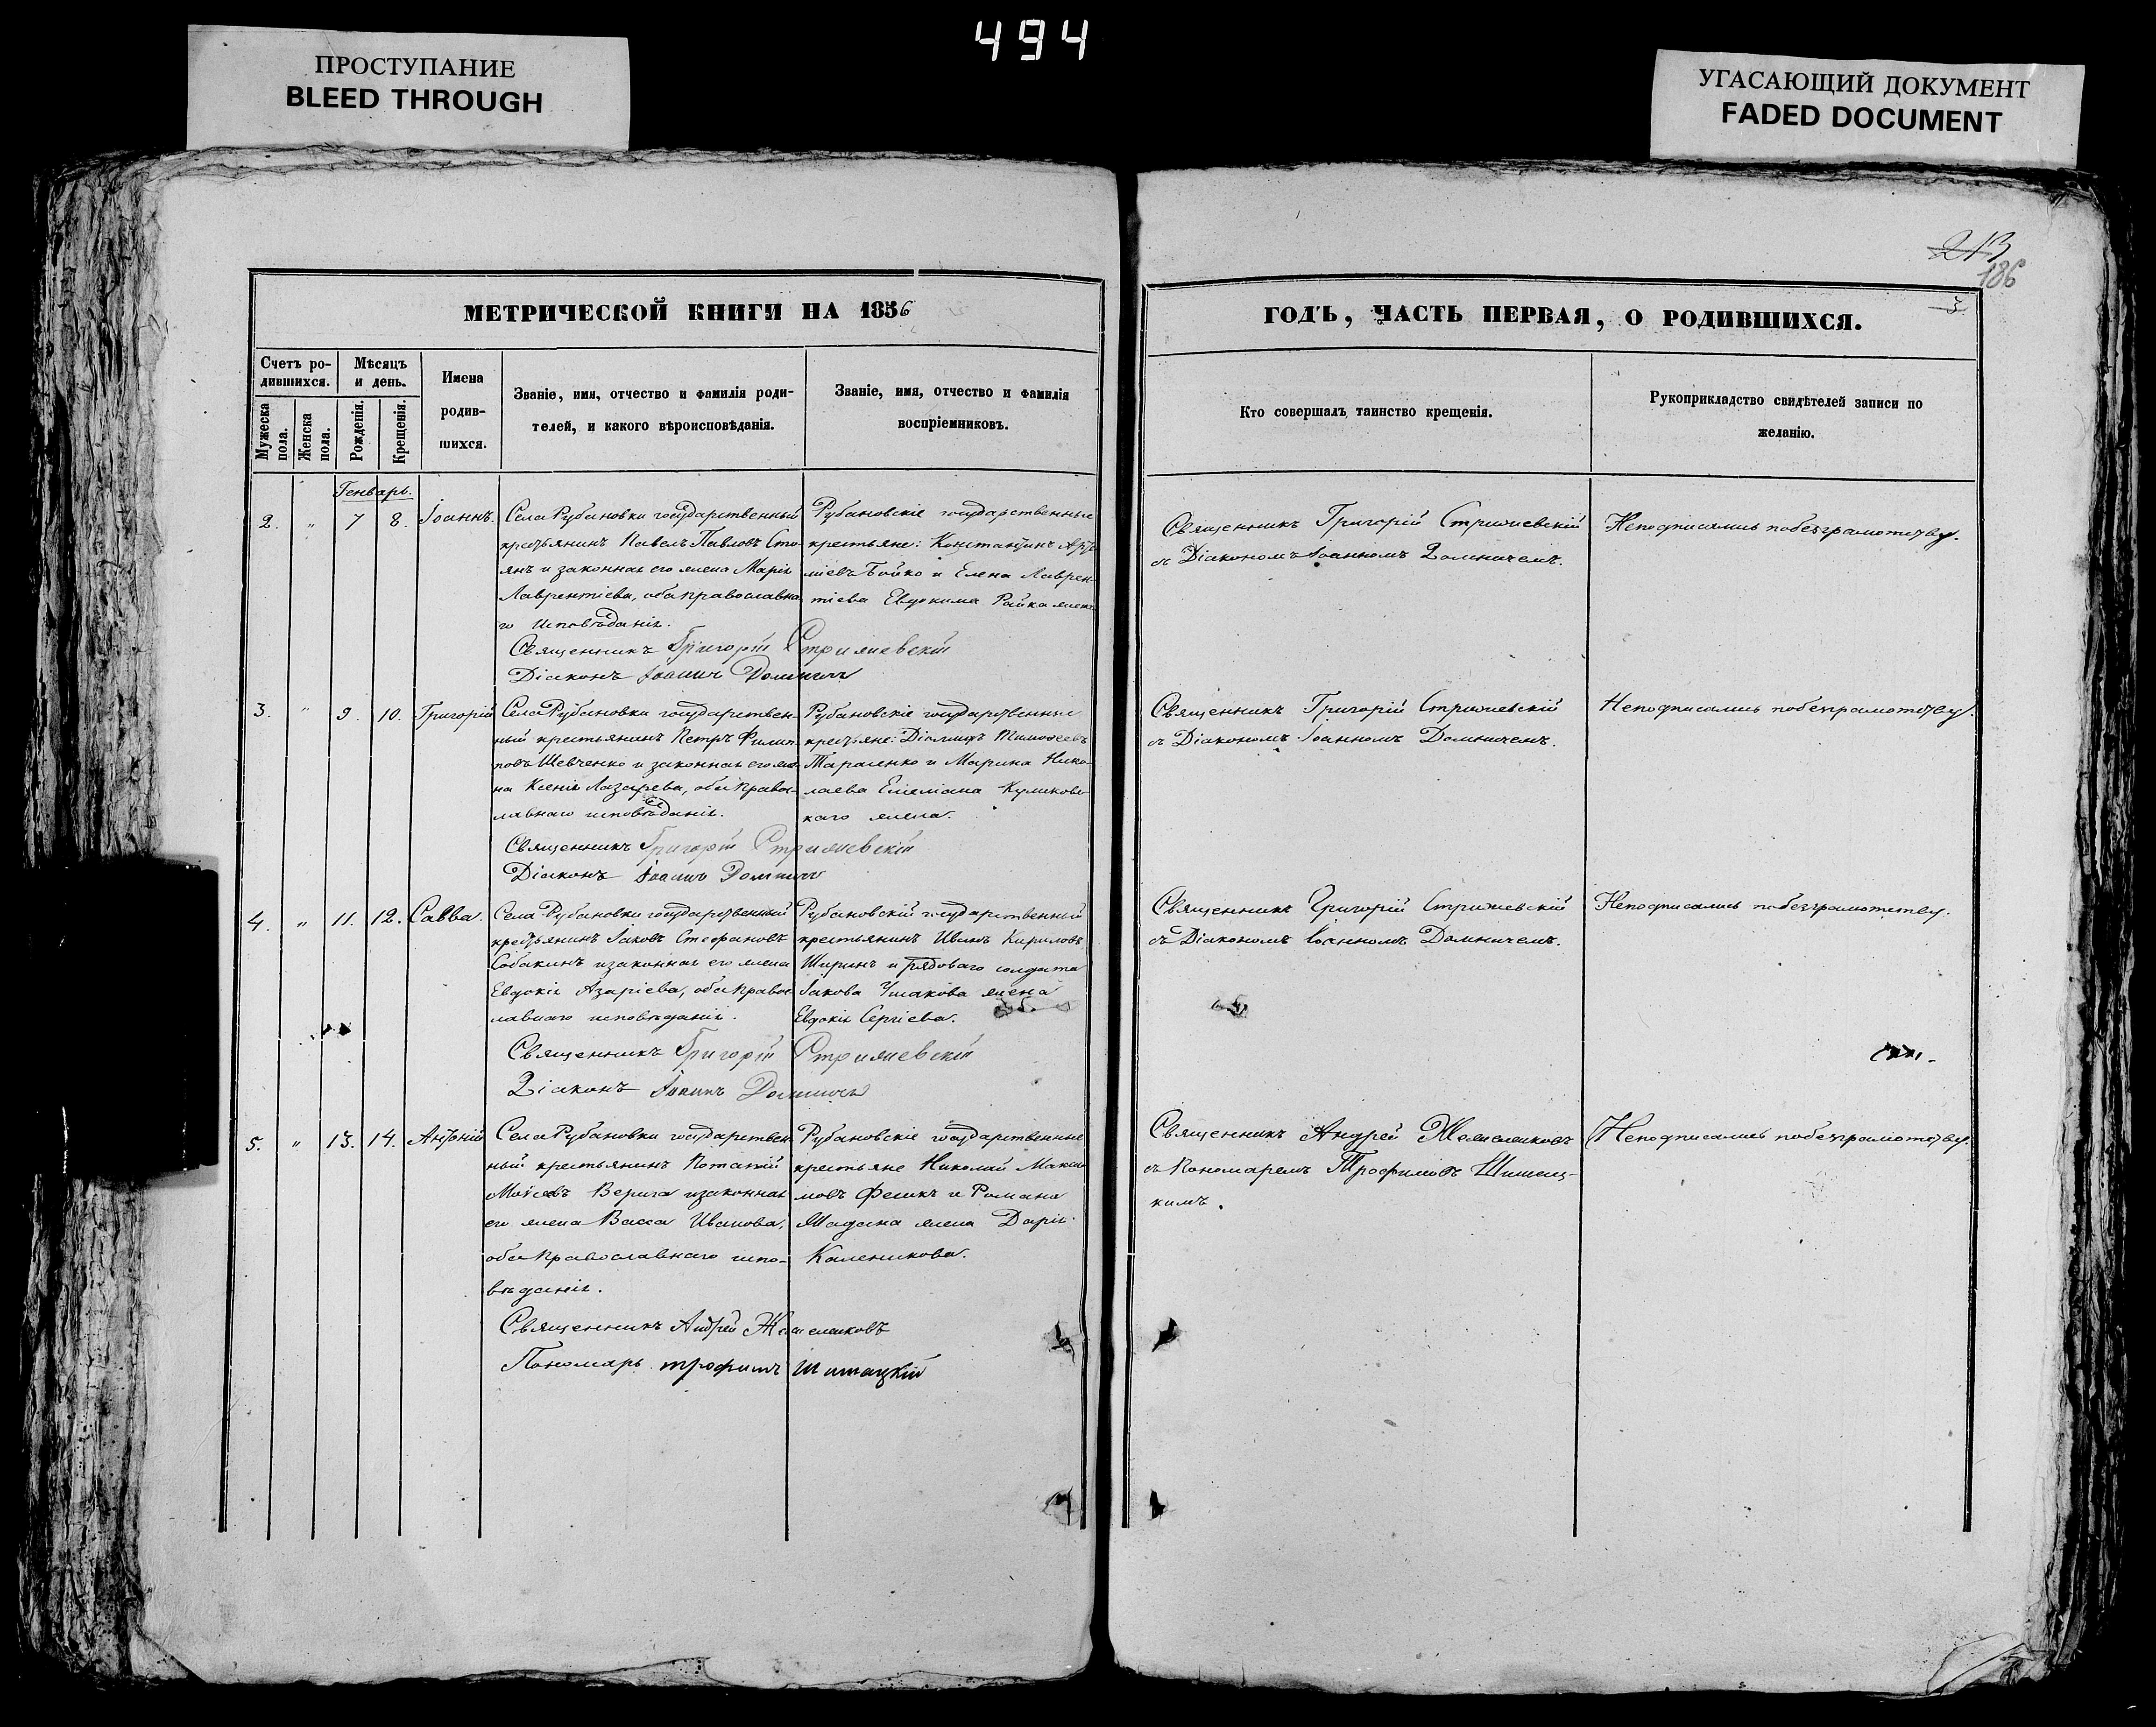 494
ПРОСТУПАНИЕ
BLEED THROUGH
УГАСАЮЩИЙ ДОКУМЕНТ
FADED DOCUMENT
213
186
3
МЕТРИЧЕСКОЙ КНИГИ НА 1856
ГОДЪ, ЧАСТЬ ПЕРВАЯ, О РОДИВШИХСЯ.
Счетъ ро-
дившихся.
Мужеска пола.
Женска пола.
Мѣсяцъ
и день.
Рожденія.
Крещенія.
Имена
родив-
шихся.
Званіе, имя, отчество и фамилія роди-
телей, и какого вѣроисповѣданія.
Званіе, имя, отчество и фамилія
воспріемниковъ.
Кто совершалъ таинство крещенія.
Рукоприкладство свидѣтелей записи по
желанію.
Генварь.
2. " 7 8. Іоаннъ.
Села Рубановки государственный
крестьянинъ Павелъ Павловъ Сто-
янъ и законная его жена Марія
Лаврентіева, оба православна-
го исповѣданія.
Рубановскіе государственные
крестьяне: Константинъ
Бойко и Елена Лаврен-
тіева Евдокима Райка жена
Священникъ Григорій Стрижевскій
съ Діакономъ Іоанномъ Домничемъ.
Неподписались побезграмотству.
Священникъ Григорій Стрижевскій
Діаконъ Іоаннъ Домничъ
3. " 9. 10. Григорій
Села Рубановки государствен-
ный крестьянинъ Петръ Филип-
повъ Шевченко и законная его же-
на Ксенія Лазарева, оба право-
славнаго исповѣданія.
Рубановскіе государственные
крестьяне: Діамидъ Тимофеевъ
Тараненко и Марина Нико-
лаева Емеліана Куликовс-
каго жена.
Священникъ Григорій Стрижевскій
съ Діакономъ Іоанномъ Домничемъ.
Неподписались побезграмотству.
Священникъ Григорій Стрижевскій
Діаконъ Іоаннъ Домничъ
4. " 11. 12. Савва.
Села Рубановки государственный
крестьянинъ Іаковъ Стефановъ
Собакинъ и законная его жена
Евдокія Азаріева, оба право-
славнаго исповѣданія.
Рубановскій государственный
крестьянинъ Иванъ Кириловъ
Ширинъ и рядоваго солдата
Іакова Ушакова жена
Евдокія Сергіева.
Священникъ Григорій Стрижевскій
съ Діакономъ Іоанномъ Домничемъ.
Неподписались побезграмотству.
Священникъ Григорій Стрижевскій
Діаконъ Іоаннъ Домничъ
5. " 13. 14. Антоній
Села Рубановки государствен-
ный крестьянинъ Потапій
Моѵсеевъ Верига и законная
его жена Васса Иванова,
оба православнаго испо-
вѣданія.
Рубановскіе государственные
крестьяне Николай Макси-
мовъ Фесикъ и Романа
Шадана жена Дарія
Каленикова.
Священникъ Андрей
съ Пономаремъ Трофимомъ Шишац-
кимъ.
Неподписались побезграмотству.
Священникъ Андрей
Пономарь трофимъ Шишацкій